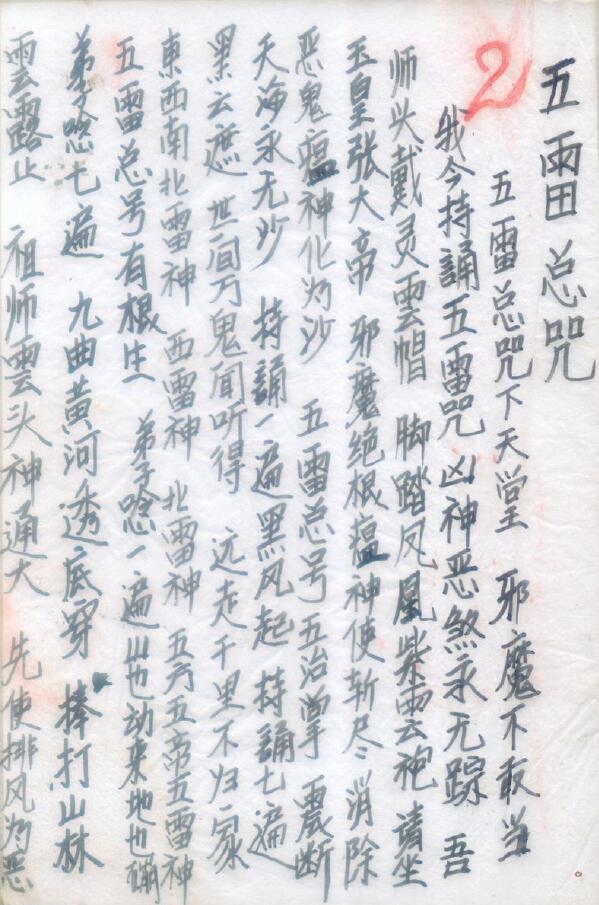 五雷总咒
2
五雷总咒下天堂 邪魔不敢当
我今持誦五雷咒 凶神恶煞永无踪 吾
师头戴灵雲帽 脚踏凤凰紫云袍 请坐
玉皇张大帝 邪魔绝根瘟神使斩尽 消除
恶鬼瘟神化为沙 五雷总号五治掌 震断
天海永无沙 持誦一遍黑风起 持誦七遍
黑云遮 世间万鬼闻听得 远走千里不归家
東西南北雷神 西雷神 北雷神 五方五帝五雷神
五雷总号有根生 弟子唸一遍山也动来地也崩
弟子唸七遍 九曲黄河透底穿 捧打山林
雲露止 祖师雲头神通大 先使排风为恶